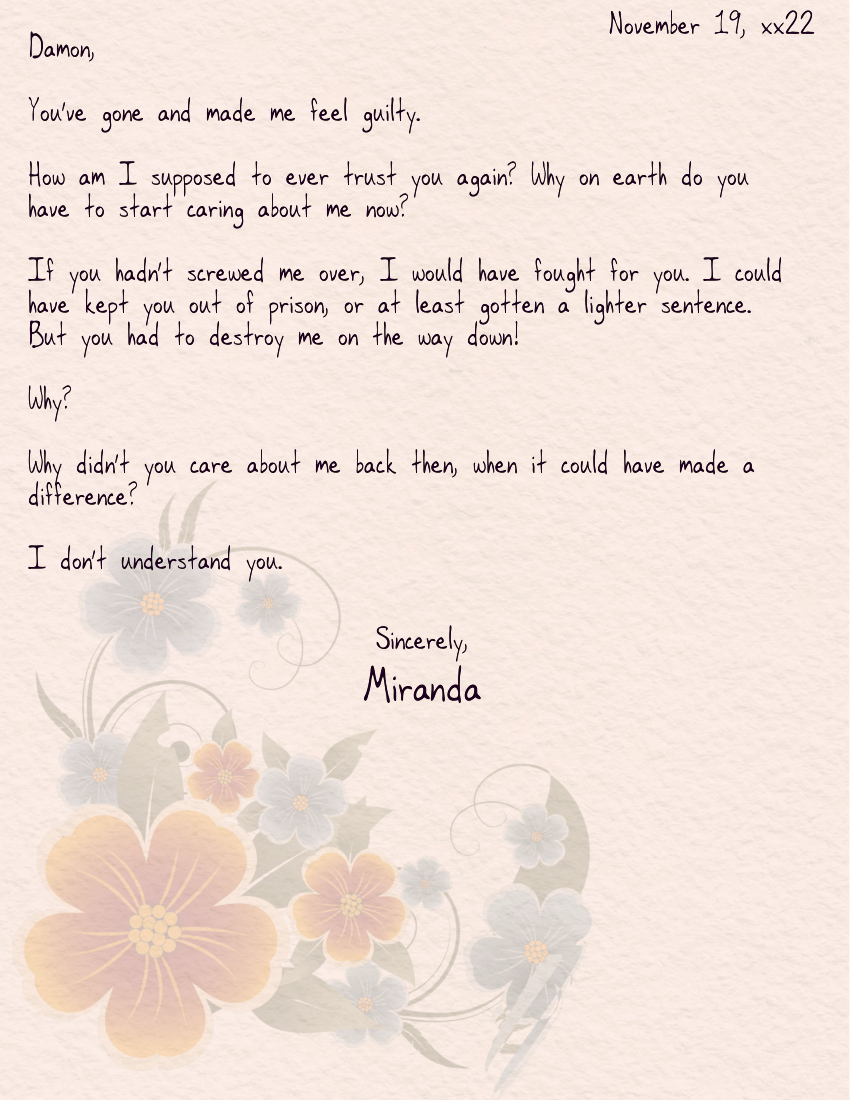 November 19, xx22
Damon,
You've gone and made me feel guilty.
How am I supposed to ever trust you again? Why on earth do you
have to start caring about me now?
If you hadn't screwed me over, I would have fought for you. I could
have kept you out of prison, or at least gotten a lighter sentence.
But you had to destroy me on the way down!
Why?
Why didn't you care about me back then, when it could have made a
difference?
I don't understand you.
Sincerely,
Miranda